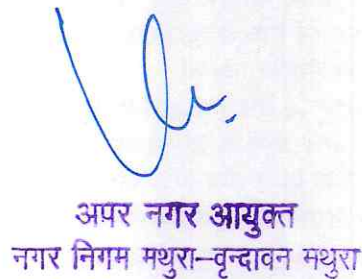 अपर नगर आयुक्त
नगर निगम मथुरा–वृन्दावन मथुरा